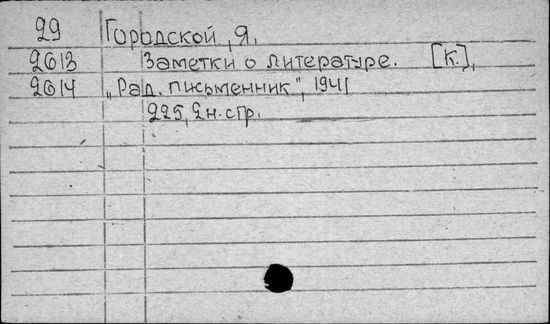 29 Городской, Я.
2013 Заметки о литературе. [К.],
2014 „Рад. письменник", 1941
225, 2н. стр.